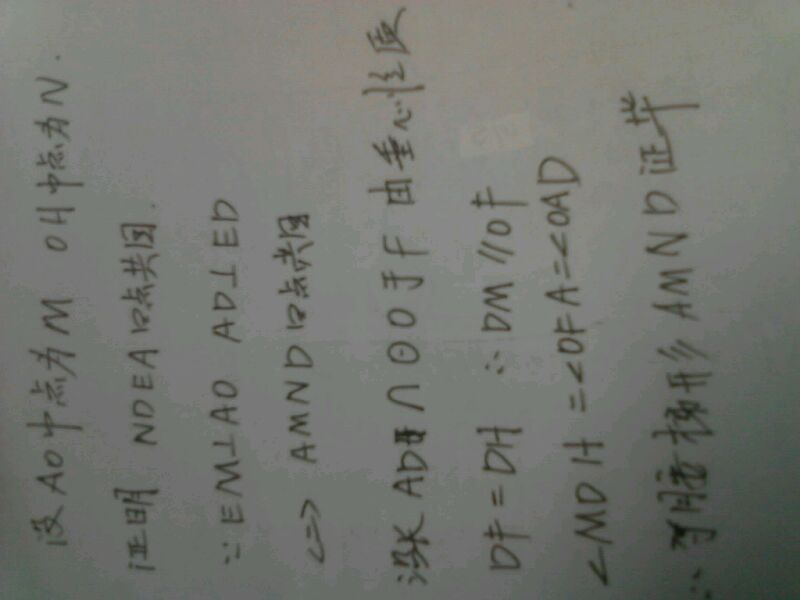 设AO中点为M OH中点为N.
证明 NDEA 四点共圆.
∵EM⊥AO AD⊥ED
<=> AMND 四点共圆
延长AD ∩⊙O于F 由垂心性质
DF=DH ∴DM∥OF
<MDH=<OFA=<OAD
∴等腰梯形AMND 证毕